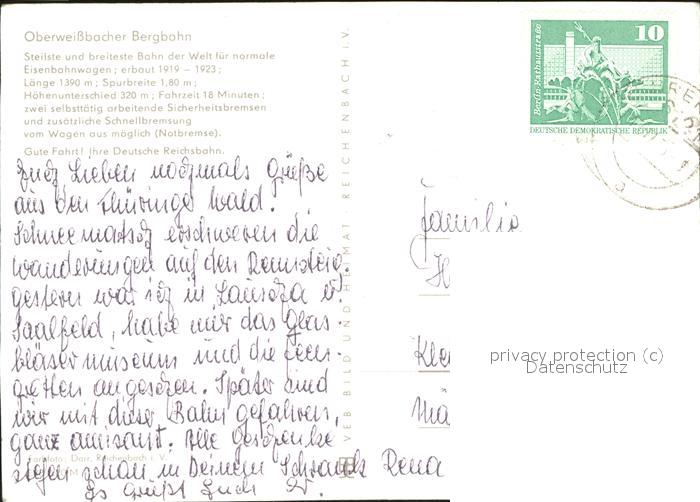 Oberweißbacher Bergbahn
Steilste und breiteste Bahn der Welt für normale
Eisenbahnwagen; erbaut 1919 – 1923;
Länge 1390 m; Spurbreite 1,80 m;
Höhenunterschied 320 m; Fahrzeit 18 Minuten;
zwei selbsttätig arbeitende Sicherheitsbremsen
und zusätzliche Schnellbremsung
vom Wagen aus möglich (Notbremse).
Gute Fahrt! Ihre Deutsche Reichsbahn.
Euch Lieben nochmals Grüße
aus den Thüringer Wald.
Schneematsch erschweren die
Wanderungen auf den Rennsteig.
gestern war ich in Lauscha u.
Saalfeld, habe mir das Glas-
bläsermuseum und die Feen-
grotten angesehen. Später sind
wir mit dieser Bahn gefahren,
ganz amüsant. Alle Geschenke
liegen schon in Deinem Schrank Rena
Es grüßt Euch
Farbfoto: Darr, Reichenbach i. V.
VEB BILD UND HEIMAT · REICHENBACH I. V.
Berlin, Rathausstraße
10
DEUTSCHE DEMOKRATISCHE REPUBLIK
Familie
H
Kle
privacy protection (c)
Datenschutz